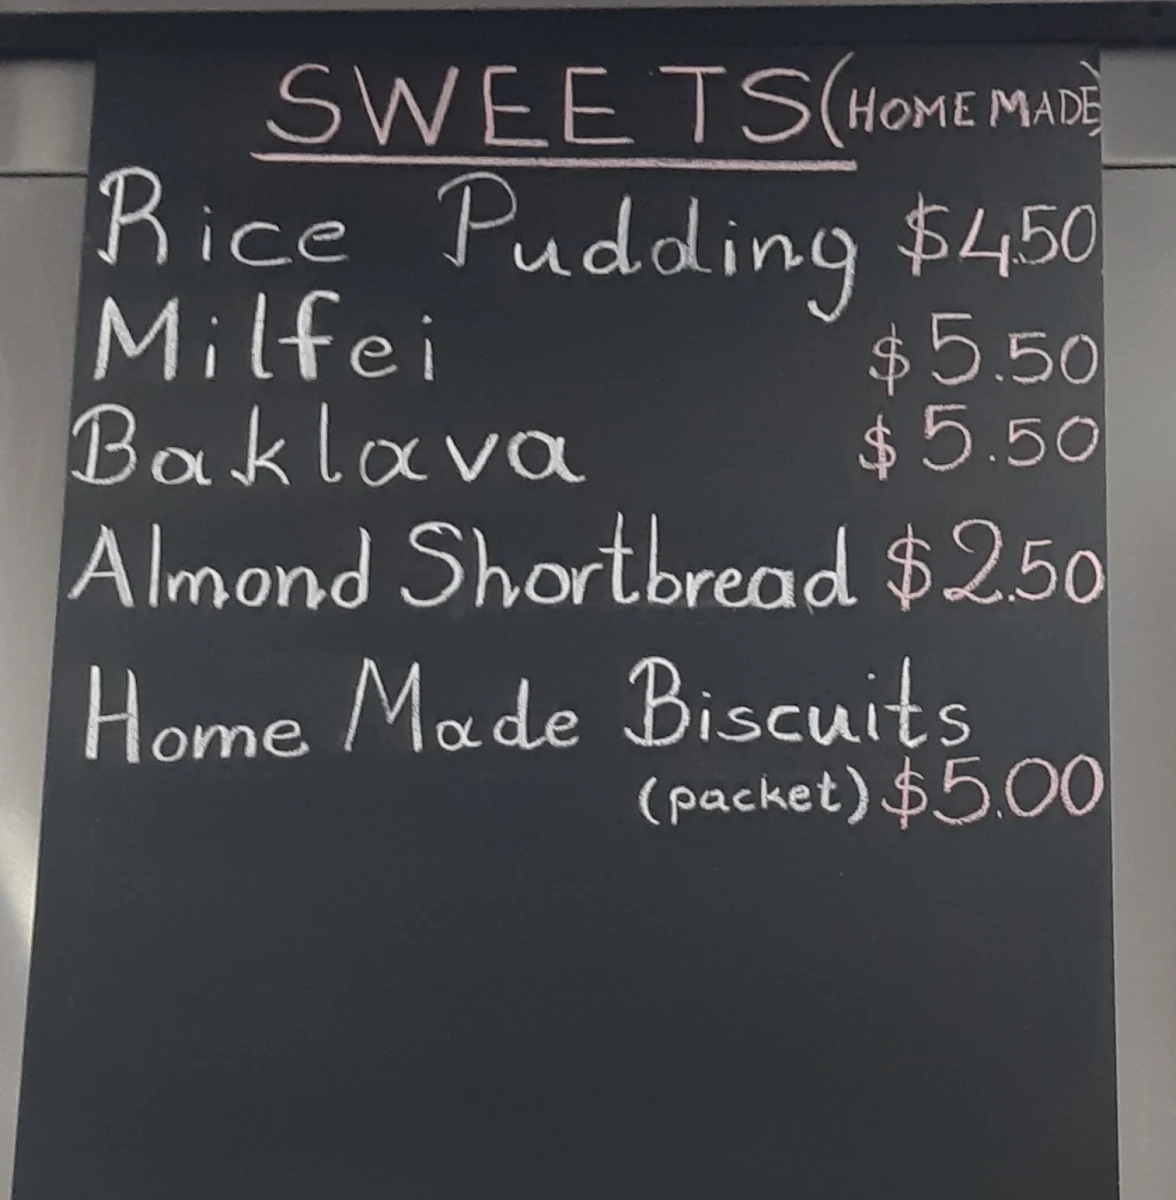 SWEETS (HOME MADE)
Rice Pudding $4.50
Milfei $5.50
Baklava $5.50
Almond Shortbread $2.50
Home Made Biscuits
(packet) $5.00